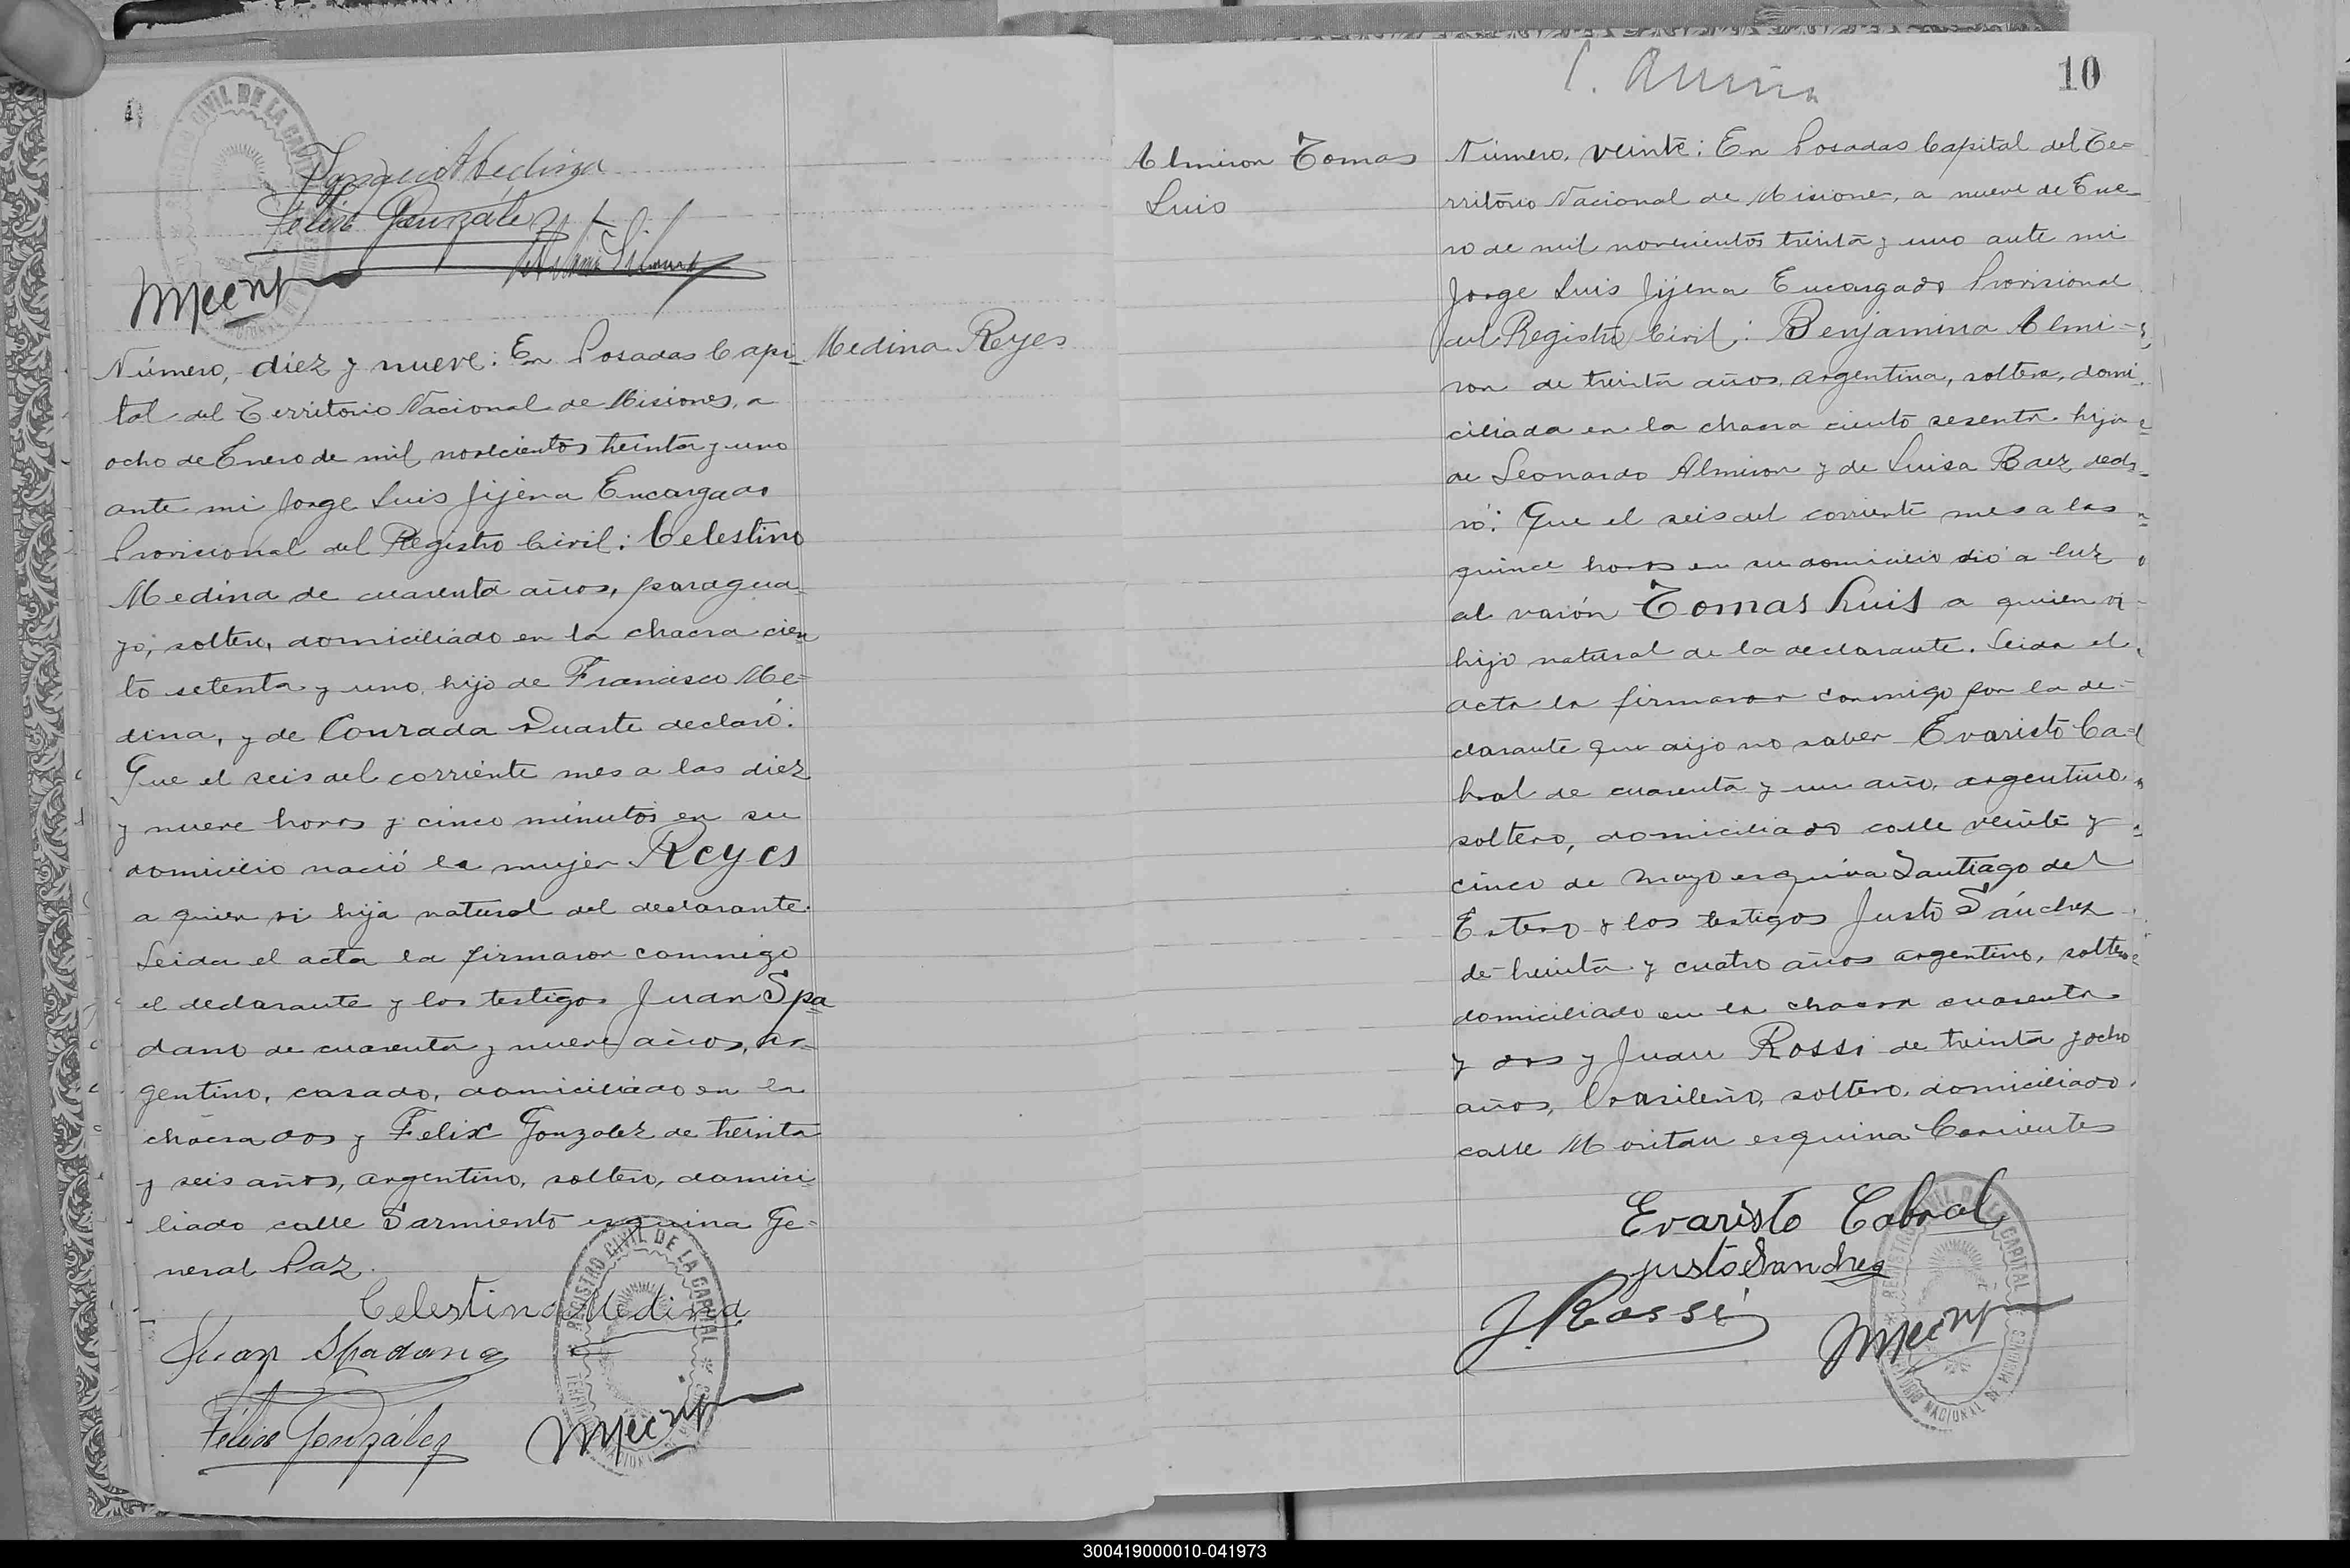 Ignacio Medina
Felix González
Número, diez y nueve: En Posadas Capi-
tal del Territorio Nacional de Misiones, a
ocho de Enero de mil novecientos treinta y uno
ante mi Jorge Luis Jijena Encargado
Provisional del Registro Civil: Celestino
Medina de cuarenta años, paragua-
yo, soltero, domiciliado en la chacra cien
to setenta y uno, hijo de Francisco Me=
dina, y de Conrada Duarte declaró:
Que el seis del corriente mes a las diez
y nueve horas y cinco minutos en su
domicilio nació la mujer Reyes
a quien vi hija natural del declarante.
Leida el acta la firmaron conmigo
el declarante y los testigos Juan Spa
dano de cuarenta y nueve años, ar=
gentino, casado, domiciliado en la
chacra dos y Felix Gonzalez de treinta
y seis años, argentino, soltero, domici
liado calle Sarmiento esquina Ge=
neral Paz.
Medina Reyes
Celestino Medina
Juan Spadano
Félix González
REGISTRO CIVIL DE LA CAPITAL
10
Almiron Tomas
Luis
Número, veinte: En Posadas Capital del Te=
rritorio Nacional de Misiones, a nueve de Ene
ro de mil novecientos treinta y uno ante mi
Jorge Luis Jijena Encargado Provisional
del Registro Civil: Benjamina Almi-
ron de treinta años, argentina, soltera, domi
ciliada en la chacra ciento sesenta hija
de Leonardo Almiron y de Luisa Baez decla
ró: Que el seis del corriente mes a las
quince horas en su domicilio dió a luz
al varón Tomas Luis a quien vi
hijo natural de la declarante. Leida el
acta la firmaron conmigo por la de-
clarante que dijo no saber Evaristo Ca=
bral de cuarenta y un año, argentino,
soltero, domiciliado calle veinte y
cinco de mayo esquina Santiago del
Estero y los testigos Justo Sánchez
de treinta y cuatro años argentino, soltero
domiciliado en la chacra cuarenta
y dos y Juan Rossi de treinta y ocho
años, brasileño, soltero, domiciliado
calle Moritan esquina Corrientes
Evaristo Cabral
Justo Sanchez
J. Rossi
REGISTRO CIVIL DE LA CAPITAL
TERRITORIO NACIONAL DE MISIONES
300419000010-041973